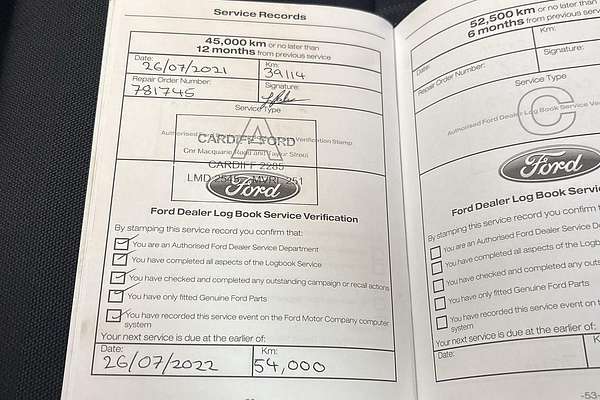 Service Records
45,000 km or no later than
12 months from previous service
Date: Km:
26/07/2021 39114
Repair Order Number: Signature:
781745
Service Type
A
Authorised Ford Dealer Log Book Service Verification Stamp
CARDIFF FORD
Cnr Macquarie Road and Taylor Street
CARDIFF 2285
LMD 2545 MVRL 251
Ford
Ford Dealer Log Book Service Verification
By stamping this service record you confirm that:
You are an Authorised Ford Dealer Service Department
You have completed all aspects of the Logbook Service
You have checked and completed any outstanding campaign or recall actions
You have only fitted Genuine Ford Parts
You have recorded this service event on the Ford Motor Company computer
system
Your next service is due at the earlier of:
Date: Km:
26/07/2022 54,000
52,500 km or no later than
6 months from previous service
Date: Km:
Repair Order Number: Signature:
Service Type
C
Authorised Ford Dealer Log Book Service
Ford
Ford Dealer Log Book Service
By stamping this service record you confirm that:
You are an Authorised Ford Dealer Service
You have completed all aspects of the Logbook
You have checked and completed any outs
You have only fitted Genuine Ford Parts
You have recorded this service event on the
system
Your next service is due at the earlier of:
Date:
-53-